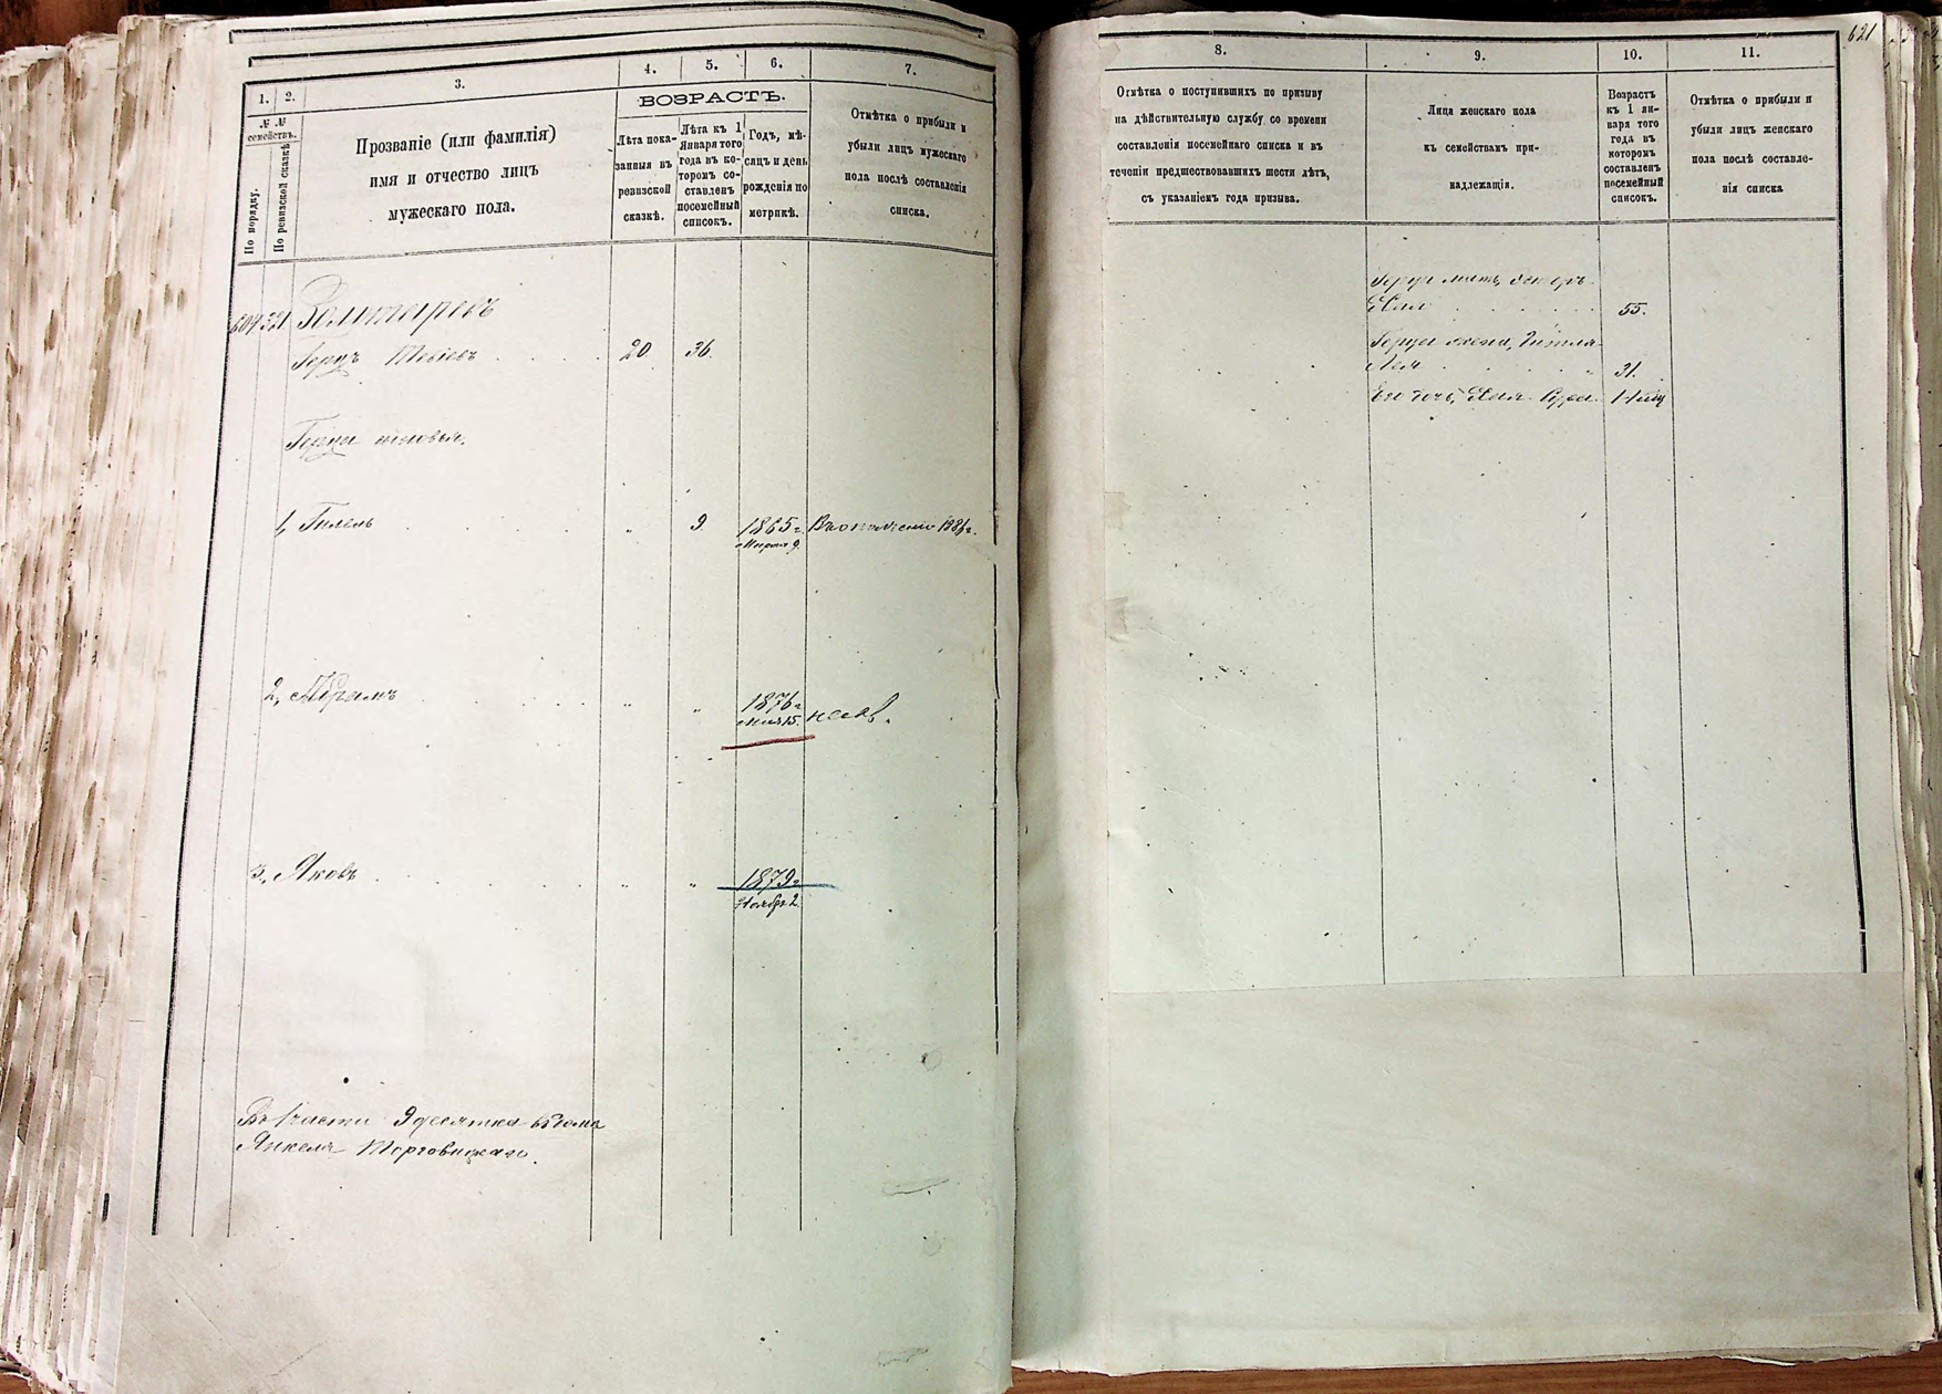 1.
2.
3.
4.
5.
6.
7.
№ №
семействъ.
По порядку.
По ревизской сказкѣ
Прозваніе (или фамилія)
имя и отчество лицъ
мужескаго пола.
ВОЗРАСТЪ.
Лѣта пока-
занныя въ
ревизской
сказкѣ.
Лѣта къ 1
Января того
года въ ко-
торомъ со-
ставленъ
посемейный
списокъ.
Годъ, мѣ-
сяцъ и день
рожденія по
метрикѣ.
Отмѣтка о прибыли и
убыли лицъ мужескаго
пола послѣ составленія
списка.
604 321 Золотаревъ
Герцъ Тевіевъ 20 36.
Герца сыновья.
1, Гилель " 9. 1865 г. Въ ополченіе
Марта 9.
2, Абрамъ " " 1876 г.
Мая 15.
3, Яковъ " " 1879 г.
Ноябр 2.
Въ 1 части 9 десятка 65 дома
Янкеля Торговицкаго.
621
8.
9.
10.
11.
Отмѣтка о поступившихъ по призыву
на дѣйствительную службу со времени
составленія посемейнаго списка и въ
теченіи предшествовавшихъ шести лѣтъ,
съ указаніемъ года призыва.
Лица женскаго пола
къ семействамъ при-
надлежащія.
Возрастъ
къ 1 ян-
варя того
года въ
которомъ
составленъ
посемейный
списокъ.
Отмѣтка о прибыли и
убыли лицъ женскаго
пола послѣ составле-
нія списка
Герца мать, Эстеръ
Хая 55.
Герца жена,
Лея 31.
Его дочь, Хая Сура